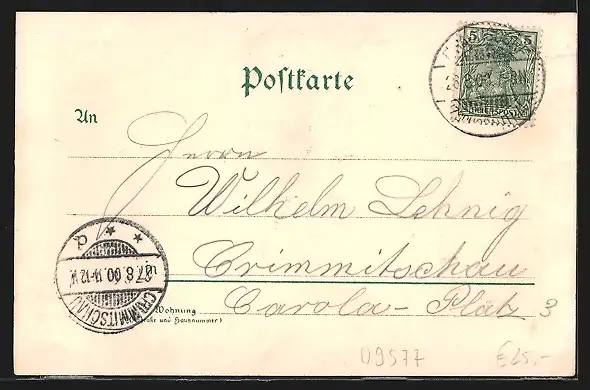 5 5
26.8.00
Postkarte
An
Herrn
Wilhelm Lehnig
Crimmitschau
Carola-Platz 3
Wohnung
(Straße und Hausnummer)
d
27.8.00. 11-12 V.
CRIMMITSCHAU
U9577
€25,-